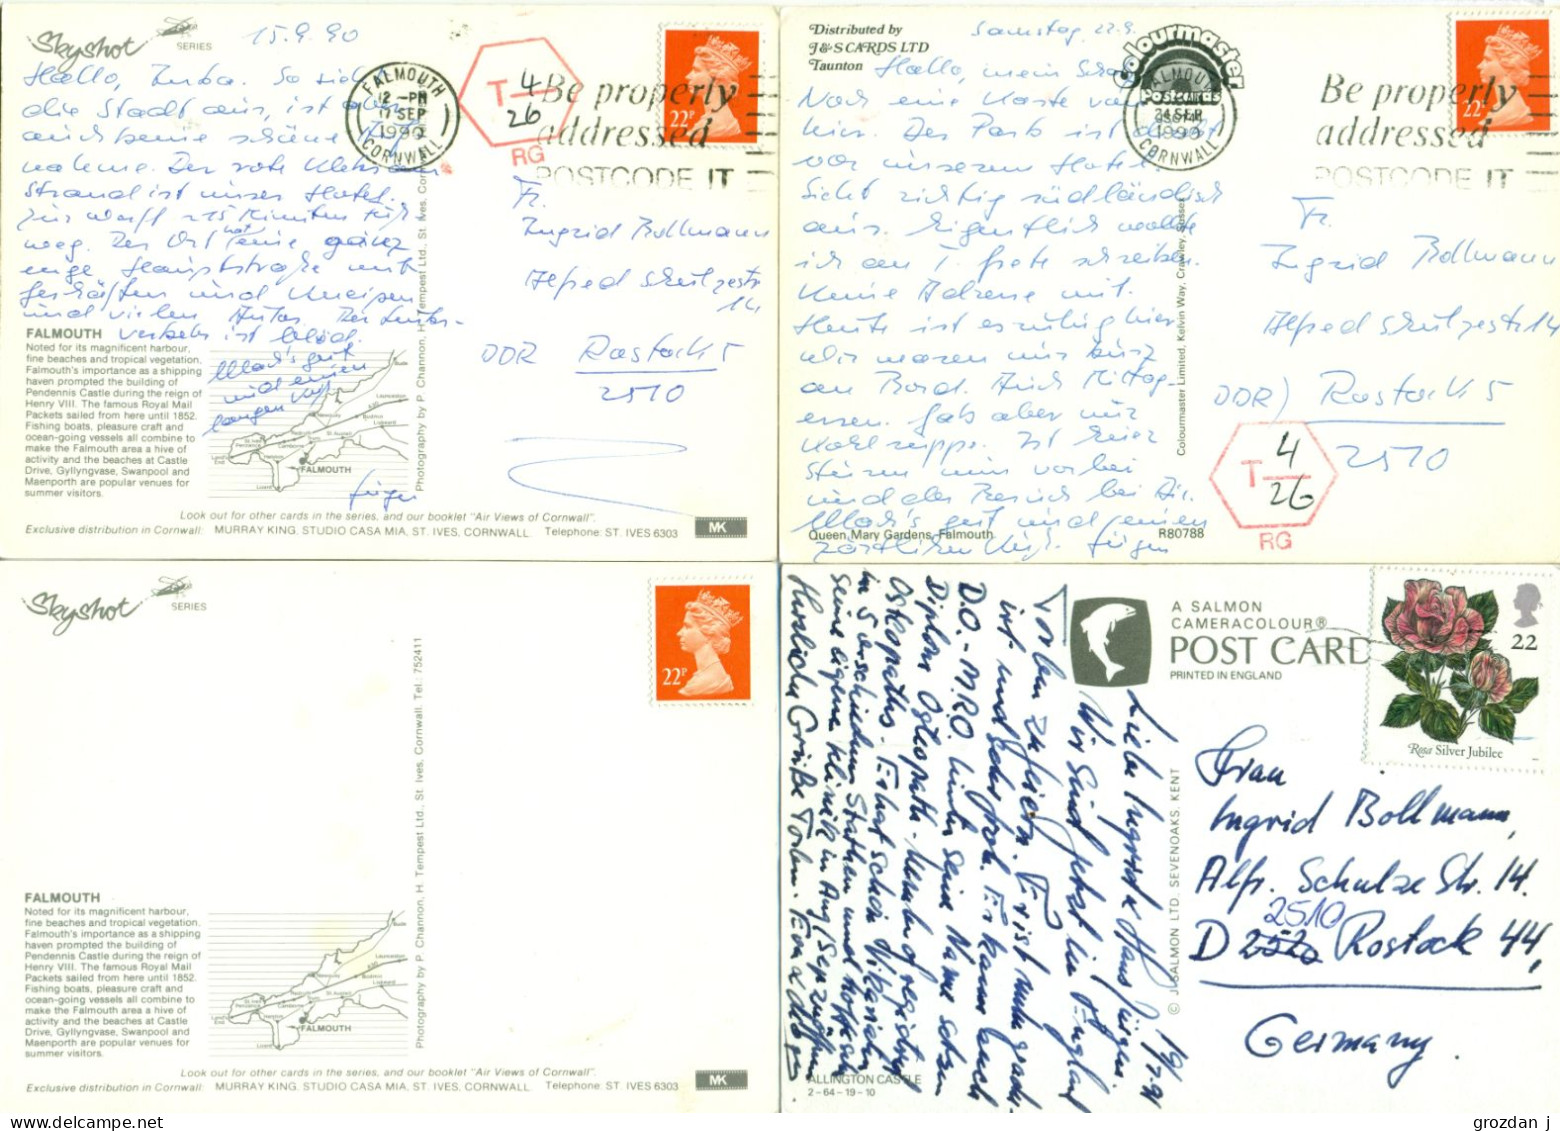 Skyshot
SERIES
15.9.90
Hallo, Inka. So sieht
die Stadt aus, ist aber
auch keine schöne
nahme. Der rote
Strand ist unser Hotel.
Zur Werft 15 Minuten
weg. Der Ort hat eine ganz
enge Hauptstraße mit
Geschäften und Kneipen
und vielen Autos. Der
verkehr ist blöd.
Mach's gut
und einen
langen
Jürgen
FALMOUTH
12 -PM
17 SEP
1990
CORNWALL
T 4
26
RG
Be properly
addressed
POSTCODE IT
22P
Fr.
Ingrid Bollmann
Alfred Schulzestr
14
DDR Rostock 5
2510
FALMOUTH
Noted for its magnificent harbour,
fine beaches and tropical vegetation.
Falmouth's importance as a shipping
haven prompted the building of
Pendennis Castle during the reign of
Henry VIII. The famous Royal Mail
Packets sailed from here until 1852.
Fishing boats, pleasure craft and
ocean-going vessels all combine to
make the Falmouth area a hive of
activity and the beaches at Castle
Drive, Gyllyngvase, Swanpool and
Maenporth are popular venues for
summer visitors.
FALMOUTH
Photography by P. Channon, H. Tempest Ltd., St. Ives, Cornwall
Look out for other cards in the series, and our booklet "Air Views of Cornwall".
Exclusive distribution in Cornwall: MURRAY KING, STUDIO CASA MIA, ST. IVES, CORNWALL. Telephone: ST. IVES 6303
MK
Distributed by
J&S CARDS LTD
Taunton
Samstag, 22.9.
Colourmaster
Postcards
Hallo, mein
Noch eine Karte von
hier. Der Park ist direkt
vor unserem Hotel.
Sieht richtig südländisch
aus. Eigentlich wollte
ich an schreiben.
Keine Adresse mit.
Heute ist es ruhig hier
Wir waren nur kurz
an Bord. Auch Mittag-
essen. Gab aber nur
Kohlsuppe. Ist hier
nur vorbei
und der bei
Mach's gut und einen
zärtlichen Kuß. Jürgen
FALMOUTH
24 SEP
1990
CORNWALL
Be properly
addressed
POSTCODE IT
22P
Fr.
Ingrid Bollmann
Alfred Schulzestr 14
DDR) Rostock 5
2510
T 4
26
RG
Colourmaster Limited, Kelvin Way, Crawley, Sussex
Queen Mary Gardens, Falmouth
R80788
Skyshot
SERIES
22P
FALMOUTH
Noted for its magnificent harbour,
fine beaches and tropical vegetation.
Falmouth's importance as a shipping
haven prompted the building of
Pendennis Castle during the reign of
Henry VIII. The famous Royal Mail
Packets sailed from here until 1852.
Fishing boats, pleasure craft and
ocean-going vessels all combine to
make the Falmouth area a hive of
activity and the beaches at Castle
Drive, Gyllyngvase, Swanpool and
Maenporth are popular venues for
summer visitors.
FALMOUTH
Photography by P. Channon, H. Tempest Ltd., St. Ives, Cornwall. Tel.: 752411
Look out for other cards in the series, and our booklet "Air Views of Cornwall".
Exclusive distribution in Cornwall: MURRAY KING, STUDIO CASA MIA, ST. IVES, CORNWALL. Telephone: ST. IVES 6303
MK
A SALMON
CAMERACOLOUR®
POST CARD
PRINTED IN ENGLAND
22
Rosa Silver Jubilee
19/7.91
Liebe Ingrid & Hans Jürgen.
Wir sind jetzt in England
Torben zu feiern. Er ist nun gradu-
irt und sehr froh. Er kann auch
D.O. - M.R.O. hinter seine Name setzen
Diplom Osteopath - Member of registered
Osteopaths. Er hat schon
in 5 verschiedenen Städten und hofft auf
seine eigene Klinik in Aug/Sep zu öffnen
Herzliche Grüße Torben. Eva &
Frau
Ingrid Bollmann,
Alfr. Schulze Str. 14.
2510
D 2520 Rostock 44,
Germany.
© J. SALMON LTD. SEVENOAKS. KENT
ALLINGTON CASTLE
2-64-19-10
grozdan j